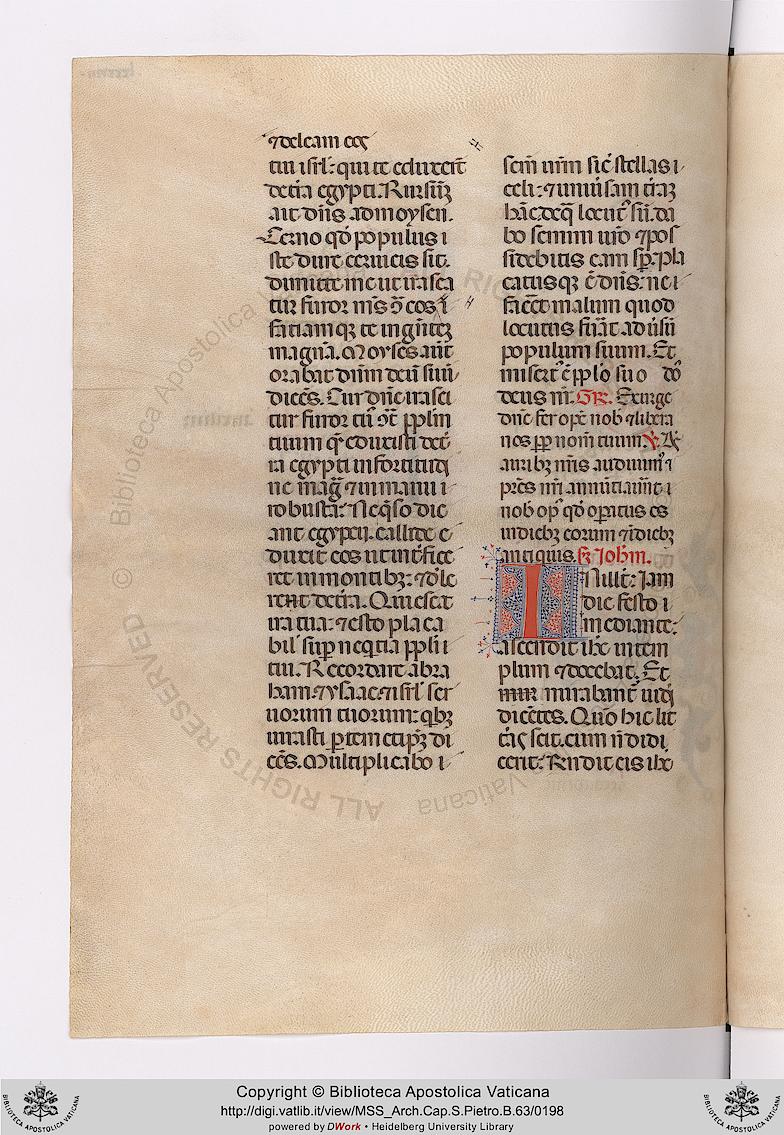 ⁊ deleam eos
tui isrl̃: qui te eduxerit̃
de tr̃a egypti. Rursũqȝ
ait dñs ad moysen.
Cerno qd̾ populus i
ste dure ceruicis sit.
dimitte me ut irasca
tur furor m̃s ɔ̃ eos ĩ
faciamqȝ te in gñteȝ
magnã. Moyses aũt
orabat dñm deũ suũ
dicẽs. Cur dñe irasci
tur furor tu᷒ ɔ̃t̃ pplm̃
tuum quẽ eduxisti de t̃
ra egypti in fortitudi
ne mag̃ ⁊ in manu i
robusta: Ne q̃so dic
ant egypcii. callide e
duxit eos ut int̃fice
ret in montibȝ: ⁊ d̾le
ret de tr̃a. Quiescat
ira tua: ⁊ esto placa
bil̾ sup̃ neq̃tia ppl̃i i
tui. Recordare abra
ham ⁊ ysaac ⁊ isrl̃ ser
uorum tuorum: qͥbȝ
iurasti ꝑ temetip̃ȝ di
cẽs. Multiplicabo i
sem̃ ur̃m sic̃ stellas i
celi: ⁊ uniũsam tr̃aȝ
hãc de q̃ locut᷒ sũ. da
bo semini ur̃o ⁊ pos
sidebitis eam sp̃. pla
catusqȝ ẽ dñs: ne i
facẽt malum quod
locutus fũat adũsũ
populum suum. Et
misert᷒ ẽ pplo suo dñs
deus nr̃. GR̃. Exurge
dñe fer opẽ nob̾ ⁊ libera
nos ꝓp̃ nom̃ tuum. ꝟ. D᷒
auribȝ nr̃is audiuim᷒ ⁊
pr̃es nr̃i annũtiauer̃t i
nob̾ op᷒ qd̾ oꝑatus es
in diebȝ eorum ⁊ ĩ diebȝ
antiquis. s̾ȝ Iohm̃.
IN illo t̃: Iam
die festo i
mediante:
ascendit ihc in tem
plum ⁊ docebat. Et
mirabant᷒ iudei
dicẽtes. Quõ hic lit
tr̃as scit. cum nõ didi
cerit: Rñdit eis ihc
Copyright © Biblioteca Apostolica Vaticana
http://digi.vatlib.it/view/MSS_Arch.Cap.S.Pietro.B.63/0198
powered by DWork • Heidelberg University Library